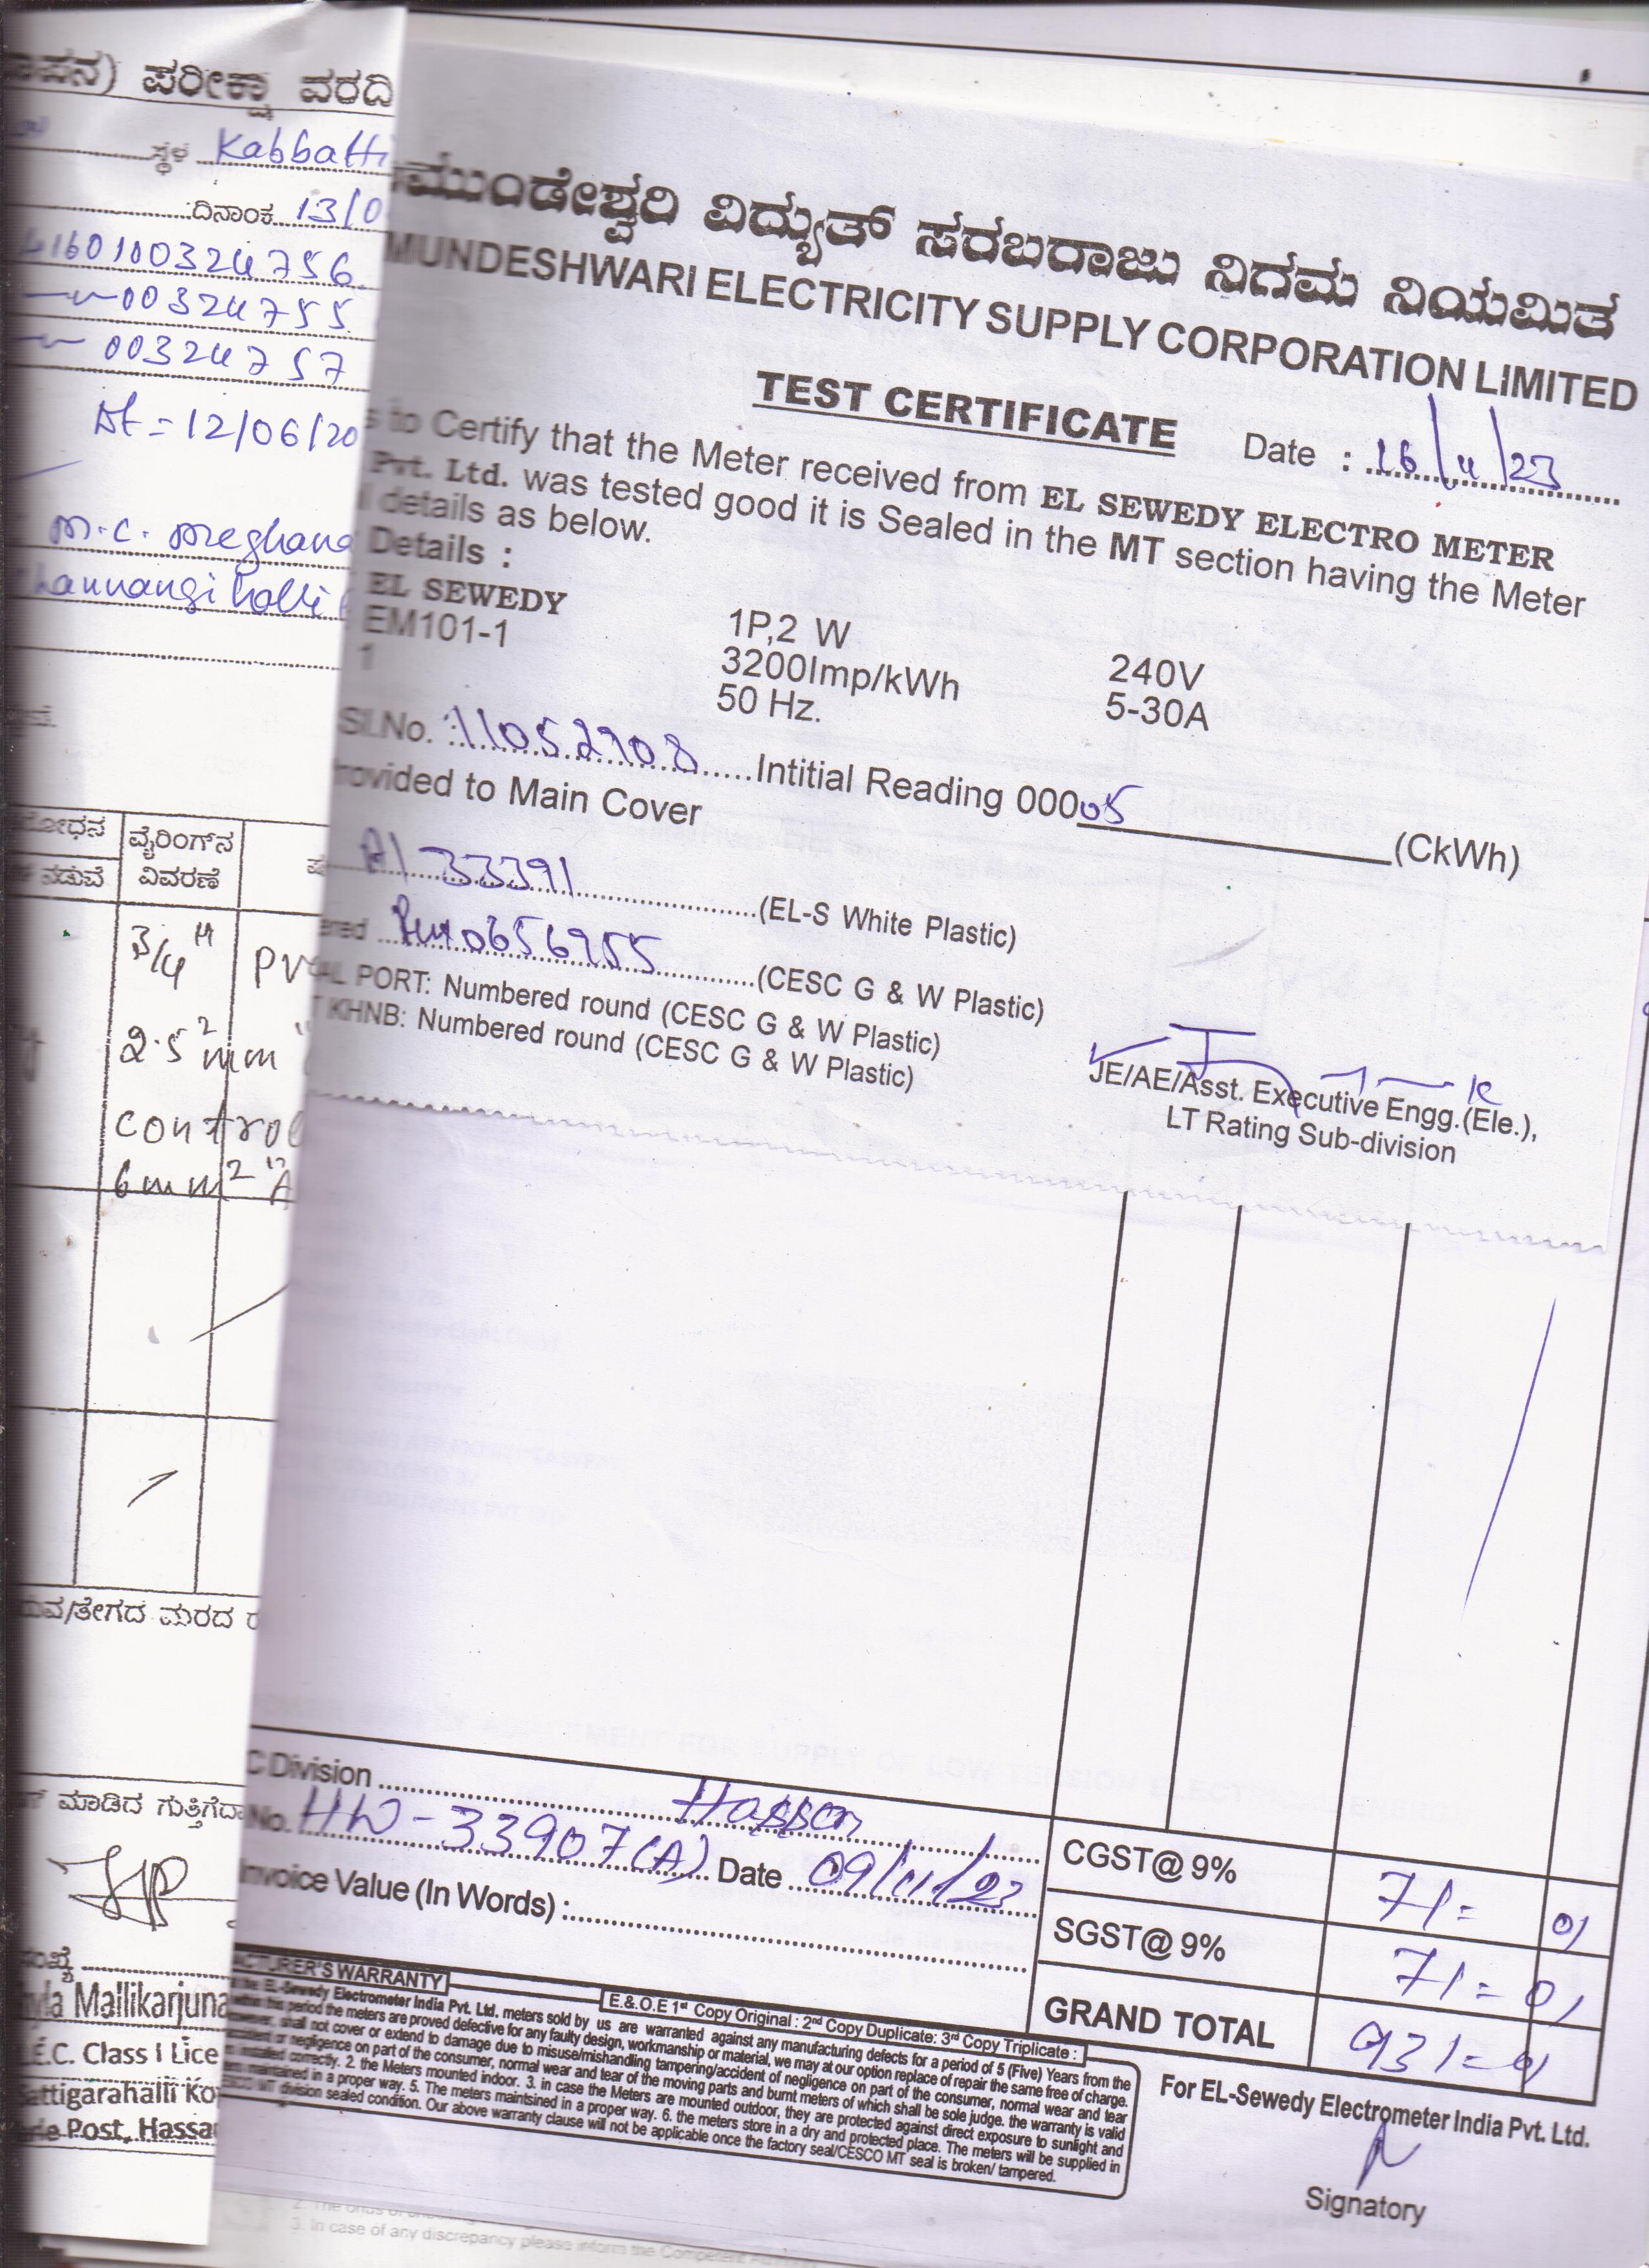 ಪರೀಕ್ಷಾ ವರದಿ
ಸ್ಥಳ Kabbatti
ದಿನಾಂಕ 13/0
4160100324756
00324755
00324757
Dt = 12/06/20
M.C. Meghana
channangihalli
ವೈರಿಂಗ್‌ನ
ನಡುವೆ ವಿವರಣೆ
3/4" PV
2.5 mm²
control
6mm² "A
ಮರದ
ಮಾಡಿದ
Mallikarjuna
E.C. Class I Lice
attigarahalli Ko
Post, Hassa
ಮುಂಡೇಶ್ವರಿ ವಿದ್ಯುತ್ ಸರಬರಾಜು ನಿಗಮ ನಿಯಮಿತ
MUNDESHWARI ELECTRICITY SUPPLY CORPORATION LIMITED
TEST CERTIFICATE
Date : 16/11/23
s to Certify that the Meter received from EL SEWEDY ELECTRO METER
Pvt. Ltd. was tested good it is Sealed in the MT section having the Meter
details as below.
Details :
EL SEWEDY
EM101-1 1P,2 W 240V
1 3200Imp/kWh 5-30A
50 Hz.
Sl.No. : 11052908 Intitial Reading 00005 (CkWh)
rovided to Main Cover
A1 33391 (EL-S White Plastic)
ered 0656955 (CESC G & W Plastic)
AL PORT: Numbered round (CESC G & W Plastic)
T KHNB: Numbered round (CESC G & W Plastic)
JE/AE/Asst. Executive Engg.(Ele.),
LT Rating Sub-division
C Division Hassan
No. HW-33907(A) Date 09/11/23
Invoice Value (In Words) :
CGST@ 9% 71=01
SGST@ 9% 71=01
GRAND TOTAL 931=01
ACTURER'S WARRANTY
E.&.O.E 1st Copy Original : 2nd Copy Duplicate: 3rd Copy Triplicate :
EL-Sewedy Electrometer India Pvt. Ltd. meters sold by us are warranted against any manufacturing defects for a period of 5 (Five) Years from the
within this period the meters are proved defective for any faulty design, workmanship or material, we may at our option replace of repair the same free of charge.
however, shall not cover or extend to damage due to misuse/mishandling tampering/accident of negligence on part of the consumer, normal wear and tear
accident or negligence on part of the consumer, normal wear and tear of the moving parts and burnt meters of which shall be sole judge. the warranty is valid
installed correctly. 2. the Meters mounted indoor. 3. in case the Meters are mounted outdoor, they are protected against direct exposure to sunlight and
maintained in a proper way. 5. The meters maintsined in a proper way. 6. the meters store in a dry and protected place. The meters will be supplied in
MT division sealed condition. Our above warranty clause will not be applicable once the factory seal/CESCO MT seal is broken/ tampered.
For EL-Sewedy Electrometer India Pvt. Ltd.
Signatory
3. In case of any discrepancy please inform the Competent